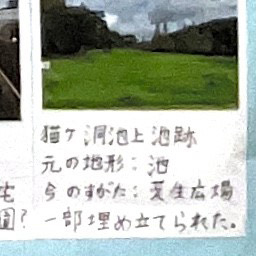 猫ヶ洞池上池跡
元の地形：池
今のすがた：芝生広場
一部埋め立てられた。
宅
園？